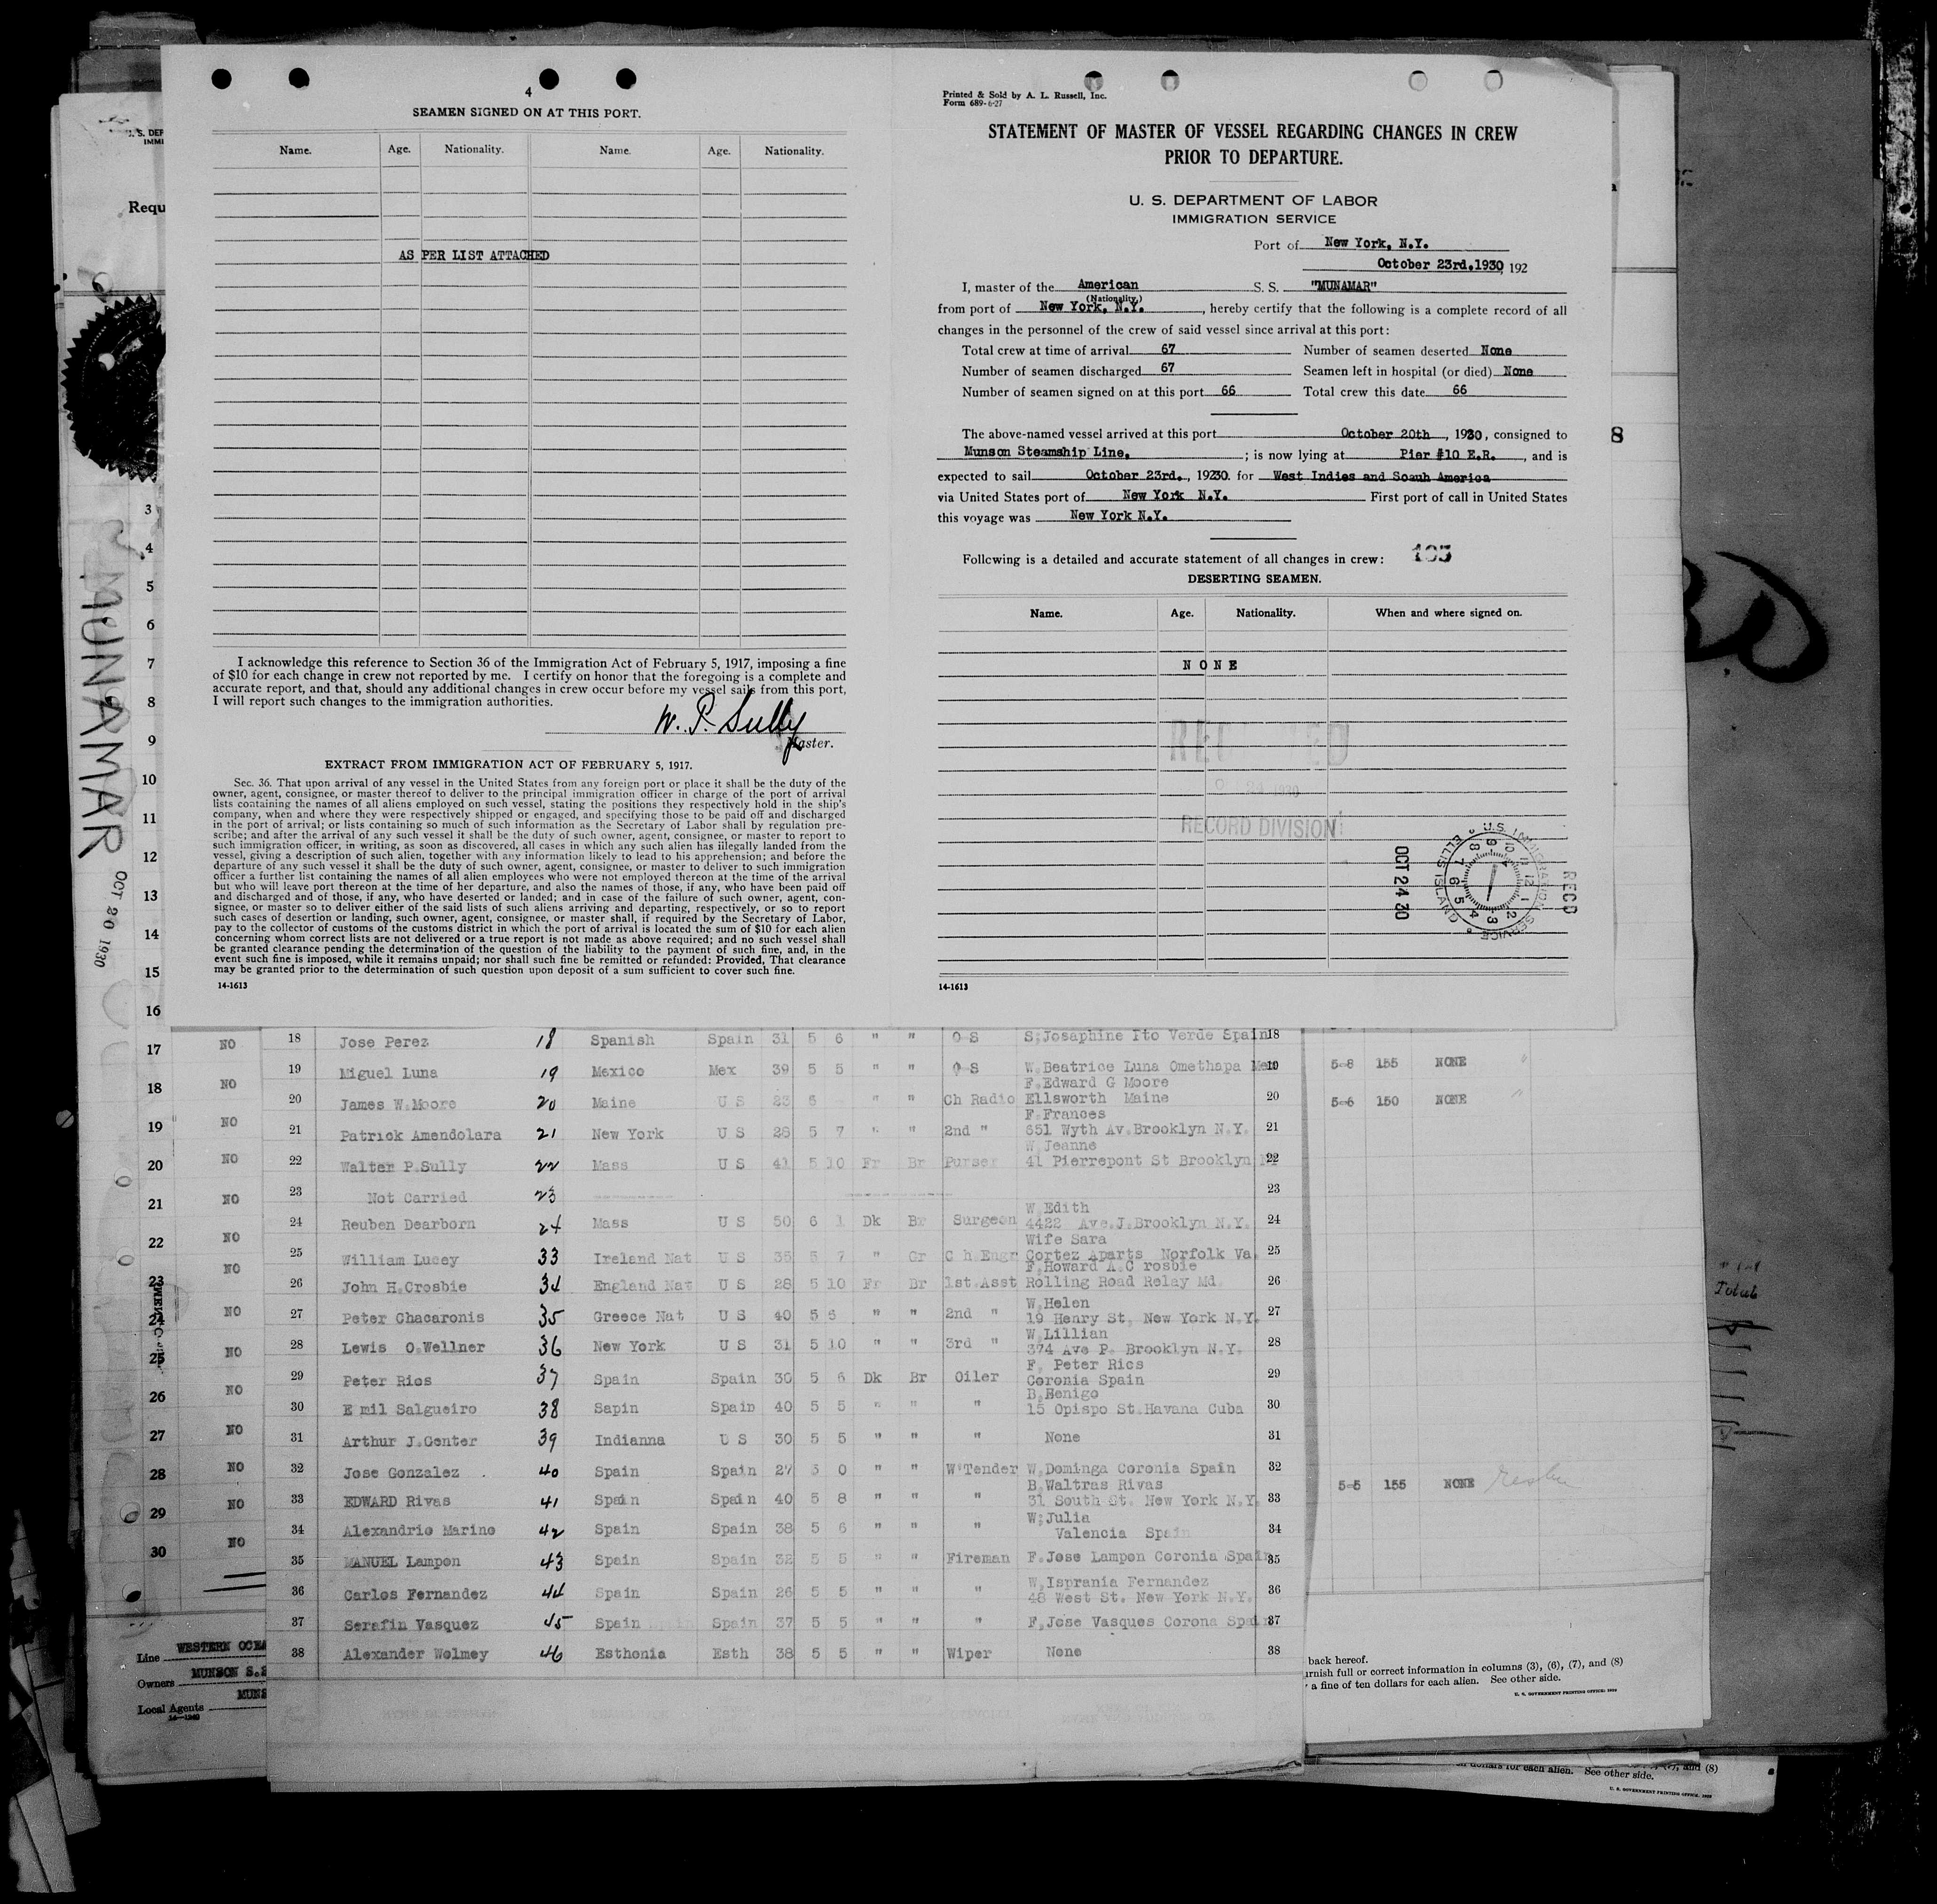 4
SEAMEN SIGNED ON AT THIS PORT.
Name. Age. Nationality. Name. Age. Nationality.
AS PER LIST ATTACHED
I acknowledge this reference to Section 36 of the Immigration Act of February 5, 1917, imposing a fine
of $10 for each change in crew not reported by me. I certify on honor that the foregoing is a complete and
accurate report, and that, should any additional changes in crew occur before my vessel sails from this port,
I will report such changes to the immigration authorities.
W. P. Sully
Master.
EXTRACT FROM IMMIGRATION ACT OF FEBRUARY 5, 1917.
Sec. 36. That upon arrival of any vessel in the United States from any foreign port or place it shall be the duty of the
owner, agent, consignee, or master thereof to deliver to the principal immigration officer in charge of the port of arrival
lists containing the names of all aliens employed on such vessel, stating the positions they respectively hold in the ship's
company, when and where they were respectively shipped or engaged, and specifying those to be paid off and discharged
in the port of arrival; or lists containing so much of such information as the Secretary of Labor shall by regulation pre-
scribe; and after the arrival of any such vessel it shall be the duty of such owner, agent, consignee, or master to report to
such immigration officer, in writing, as soon as discovered, all cases in which any such alien has illegally landed from the
vessel, giving a description of such alien, together with any information likely to lead to his apprehension; and before the
departure of any such vessel it shall be the duty of such owner, agent, consignee, or master to deliver to such immigration
officer a further list containing the names of all alien employees who were not employed thereon at the time of the arrival
but who will leave port thereon at the time of her departure, and also the names of those, if any, who have been paid off
and discharged and of those, if any, who have deserted or landed; and in case of the failure of such owner, agent, con-
signee, or master so to deliver either of the said lists of such aliens arriving and departing, respectively, or so to report
such cases of desertion or landing, such owner, agent, consignee, or master shall, if required by the Secretary of Labor,
pay to the collector of customs of the customs district in which the port of arrival is located the sum of $10 for each alien
concerning whom correct lists are not delivered or a true report is not made as above required; and no such vessel shall
be granted clearance pending the determination of the question of the liability to the payment of such fine, and, in the
event such fine is imposed, while it remains unpaid; nor shall such fine be remitted or refunded: Provided, That clearance
may be granted prior to the determination of such question upon deposit of a sum sufficient to cover such fine.
14-1613
Printed & Sold by A. L. Russell, Inc.
Form 689-6-27
STATEMENT OF MASTER OF VESSEL REGARDING CHANGES IN CREW
PRIOR TO DEPARTURE.
U. S. DEPARTMENT OF LABOR
IMMIGRATION SERVICE
Port of New York, N.Y.
October 23rd.1930, 192
I, master of the American S. S. "MUNAMAR"
(Nationality.)
from port of New York, N.Y., hereby certify that the following is a complete record of all
changes in the personnel of the crew of said vessel since arrival at this port:
Total crew at time of arrival 67 Number of seamen deserted None
Number of seamen discharged 67 Seamen left in hospital (or died) None
Number of seamen signed on at this port 66 Total crew this date 66
The above-named vessel arrived at this port October 20th, 1930, consigned to
Munson Steamship Line. ; is now lying at Pier #10 E.R., and is
expected to sail October 23rd., 19230. for West Indies and Soauh America
via United States port of New York N.Y. First port of call in United States
this voyage was New York N.Y.
Following is a detailed and accurate statement of all changes in crew: 103
DESERTING SEAMEN.
Name. Age. Nationality. When and where signed on.
NONE
RECORD DIVISION
OCT 24 30
U.S. IMMIGRATION SERVICE ELLIS ISLAND
REC'D
14-1613
Requ
MUNAMAR OCT 20 1930
3
4
5
6
7
8
9
10
11
12
13
14
15
16
17 NO
18 NO
19 NO
20 NO
21 NO
22 NO
23 NO
24 NO
25 NO
26 NO
27 NO
28 NO
29 NO
30 NO
8
18 Jose Perez 18 Spanish Spain 31 5 6 " " O S S;Josaphine Ito Verde Spain 18
19 Miguel Luna 19 Mexico Mex 39 5 5 " " O S W.Beatrice Luna Omethapa Mex 19
F.Edward G Moore
20 James W.Moore 20 Maine U S 23 6 " " Ch Radio Ellsworth Maine 20
F.Frances
21 Patrick Amendolara 21 New York U S 26 5 7 " " 2nd " 651 Wyth Av.Brooklyn N.Y. 21
W Jeanne
22 Walter P.Sully 22 Mass U S 41 5 10 Fr Br Purser 41 Pierrepont St Brooklyn 22
23 Not Carried 23 23
W Edith
24 Reuben Dearborn 24 Mass U S 50 6 1 Dk Br Surgeon 4422 Ave.J.Brooklyn N.Y. 24
Wife Sara
25 William Lucey 33 Ireland Nat U S 35 5 7 " Gr C h.Engr Cortez Aparts Norfolk Va. 25
F.Howard A.C rosbie
26 John H.Crosbie 34 England Nat U S 28 5 10 Fr Br 1st.Asst Rolling Road Relay Md. 26
W.Helen
27 Peter Chacaronis 35 Greece Nat U S 40 5 6 " " 2nd " 19 Henry St, New York N.Y. 27
W.Lillian
28 Lewis O.Wellner 36 New York U S 31 5 10 " " 3rd " 374 Ave P. Brooklyn N.Y. 28
F, Peter Rios
29 Peter Rios 37 Spain Spain 30 5 6 Dk Br Oiler Coronia Spain 29
B.Benigo
30 E mil Salgueiro 38 Sapin Spain 40 5 5 " " " 15 Opispo St.Havana Cuba 30
31 Arthur J.Center 39 Indianna U S 30 5 5 " " " None 31
32 Jose Gonzalez 40 Spain Spain 27 5 0 " " W'Tender W.Dominga Coronia Spain 32
B.Waltras Rivas
33 EDWARD Rivas 41 Spain Spain 40 5 8 " " " 31 South St. New York N.Y. 33
W;Julia
34 Alexandrio Marino 42 Spain Spain 38 5 6 " " " Valencia Spain 34
35 MANUEL Lampon 43 Spain Spain 32 5 5 " " Fireman F.Jose Lampon Coronia Spain 35
W.Isprania Fernandez
36 Carlos Fernandez 44 Spain Spain 26 5 5 " " " 48 West St. New York N.Y. 36
37 Serafin Vasquez 45 Spain Spain 37 5 5 " " " F.Jose Vasques Corona Spain 37
38 Alexander Wolmey 46 Esthonia Esth 38 5 5 " " Wiper None 38
5-8 155 NONE "
5-6 150 NONE "
5-5 155 NONE
Total
Line WESTERN OCEA
Owners MUNSON S.S
Local Agents MUNS
back hereof.
urnish full or correct information in columns (3), (6), (7), and (8)
a fine of ten dollars for each alien. See other side.
U. S. GOVERNMENT PRINTING OFFICE: 1929
dollars for each alien. See other side.
and (8)
U. S. GOVERNMENT PRINTING OFFICE: 1929